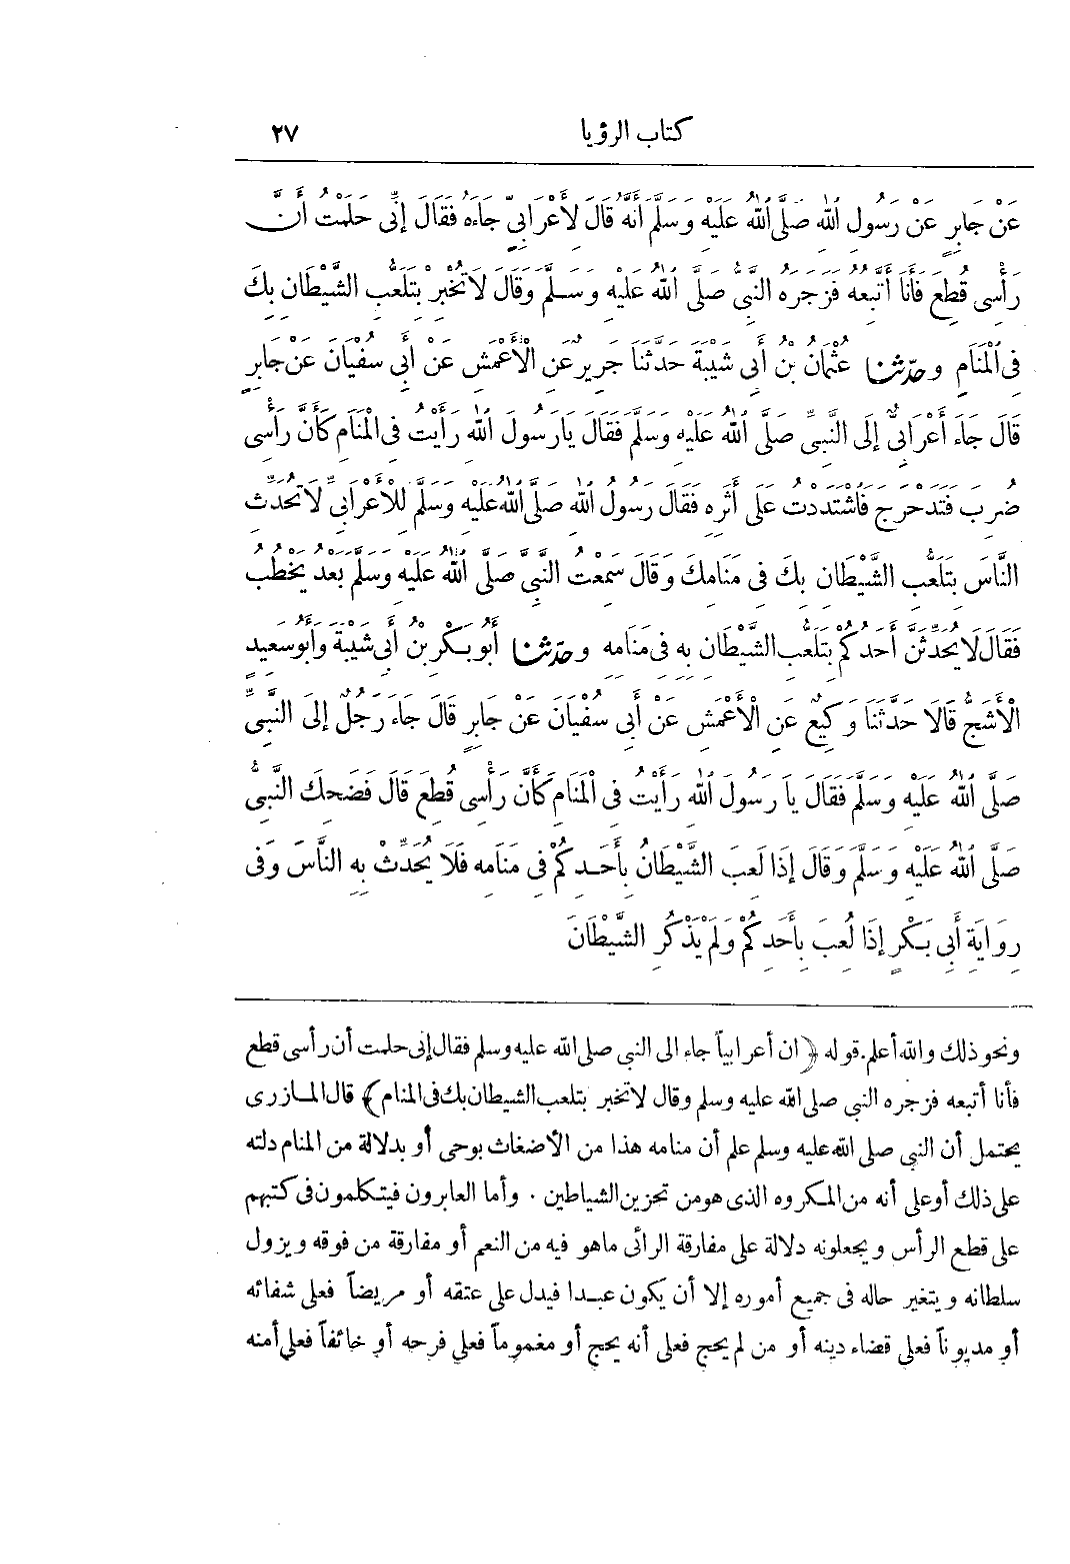 كتاب الرؤيا ٢٧
عَنْ جَابِرٍ عَنْ رَسُولِ اللهِ صَلَّى اللهُ عَلَيْهِ وَسَلَّمَ أَنَّهُ قَالَ لِأَعْرَابِيٍّ جَاءَهُ فَقَالَ إِنِّى حَلَمْتُ أَنَّ
رَأْسِى قُطِعَ فَأَنَا أَتَّبِعُهُ فَزَجَرَهُ النَّبِىُّ صَلَّى اللهُ عَلَيْهِ وَسَلَّمَ وَقَالَ لَا تُخْبِرْ بِتَلَعُّبِ الشَّيْطَانِ بِكَ
فِى الْمَنَامِ وحدّثنا عُثْمَانُ بْنُ أَبِى شَيْبَةَ حَدَّثَنَا جَرِيرٌ عَنِ الْأَعْمَشِ عَنْ أَبِى سُفْيَانَ عَنْ جَابِرٍ
قَالَ جَاءَ أَعْرَابِىٌّ إِلَى النَّبِىِّ صَلَّى اللهُ عَلَيْهِ وَسَلَّمَ فَقَالَ يَا رَسُولَ اللهِ رَأَيْتُ فِى الْمَنَامِ كَأَنَّ رَأْسِى
ضُرِبَ فَتَدَحْرَجَ فَاشْتَدَدْتُ عَلَى أَثَرِهِ فَقَالَ رَسُولُ اللهِ صَلَّى اللهُ عَلَيْهِ وَسَلَّمَ لِلْأَعْرَابِىِّ لَا تُحَدِّثِ
النَّاسَ بِتَلَعُّبِ الشَّيْطَانِ بِكَ فِى مَنَامِكَ وَقَالَ سَمِعْتُ النَّبِىَّ صَلَّى اللهُ عَلَيْهِ وَسَلَّمَ بَعْدُ يَخْطُبُ
فَقَالَ لَا يُحَدِّثَنَّ أَحَدُكُمْ بِتَلَعُّبِ الشَّيْطَانِ بِهِ فِى مَنَامِهِ وحدّثنا أَبُو بَكْرِ بْنُ أَبِى شَيْبَةَ وَأَبُو سَعِيدٍ
الْأَشَجُّ قَالَا حَدَّثَنَا وَكِيعٌ عَنِ الْأَعْمَشِ عَنْ أَبِى سُفْيَانَ عَنْ جَابِرٍ قَالَ جَاءَ رَجُلٌ إِلَى النَّبِىِّ
صَلَّى اللهُ عَلَيْهِ وَسَلَّمَ فَقَالَ يَا رَسُولَ اللهِ رَأَيْتُ فِى الْمَنَامِ كَأَنَّ رَأْسِى قُطِعَ قَالَ فَضَحِكَ النَّبِىُّ
صَلَّى اللهُ عَلَيْهِ وَسَلَّمَ وَقَالَ إِذَا لَعِبَ الشَّيْطَانُ بِأَحَدِكُمْ فِى مَنَامِهِ فَلَا يُحَدِّثْ بِهِ النَّاسَ وَفِى
رِوَايَةِ أَبِى بَكْرٍ إِذَا لُعِبَ بِأَحَدِكُمْ وَلَمْ يَذْكُرِ الشَّيْطَانَ
ونحو ذلك والله أعلم. قوله ﴿ان أعرابياً جاء الى النبى صلى الله عليه وسلم فقال إنى حلمت أن رأسى قطع
فأنا أتبعه فزجره النبى صلى الله عليه وسلم وقال لا تخبر بتلعب الشيطان بك فى المنام﴾ قال المازرى
يحتمل أن النبى صلى الله عليه وسلم علم أن منامه هذا من الأضغاث بوحى أو بدلالة من المنام دلته
على ذلك أو على أنه من المكروه الذى هو من تحزين الشياطين . وأما العابرون فيتكلمون فى كتبهم
على قطع الرأس ويجعلونه دلالة على مفارقة الرائى ماهو فيه من النعم أو مفارقة من فوقه ويزول
سلطانه ويتغير حاله فى جميع أموره إلا أن يكون عبدا فيدل على عتقه أو مريضاً فعلى شفائه
أو مديوناً فعلى قضاء دينه أو من لم يحج فعلى أنه يحج أو مغموماً فعلى فرحه أو خائفاً فعلى أمنه